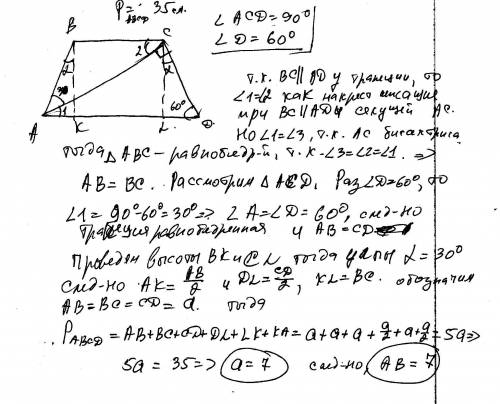 P_ABCD = 35 см.
∠ACD = 90°
∠D = 60°
B C
2 α
α
3 1 60°
A K L D
т.к. BC∥AD у трапеции, то
∠1=∠2 как накрест лежащие
при BC∥AD и секущей AC.
Но ∠1=∠3, т.к. AC биссектриса
тогда △ABC – равнобедр-й, т.к. ∠3=∠2=∠1. ⇒
AB = BC. Рассмотрим △ACD. Раз ∠D=60°, то
∠1 = 90°-60°=30° ⇒ ∠A=∠D=60°, след-но
трапеция равнобедренная и AB=CD
Проведём высоты BK и CL тогда углы α = 30°
след-но AK = AB/2 и DL = CD/2, KL=BC. обозначим
AB=BC=CD=a. тогда
P_ABCD = AB+BC+CD+DL+LK+KA = a+a+a+a/2+a+a/2 = 5a ⇒
5a = 35 ⇒ a = 7 след-но, AB = 7